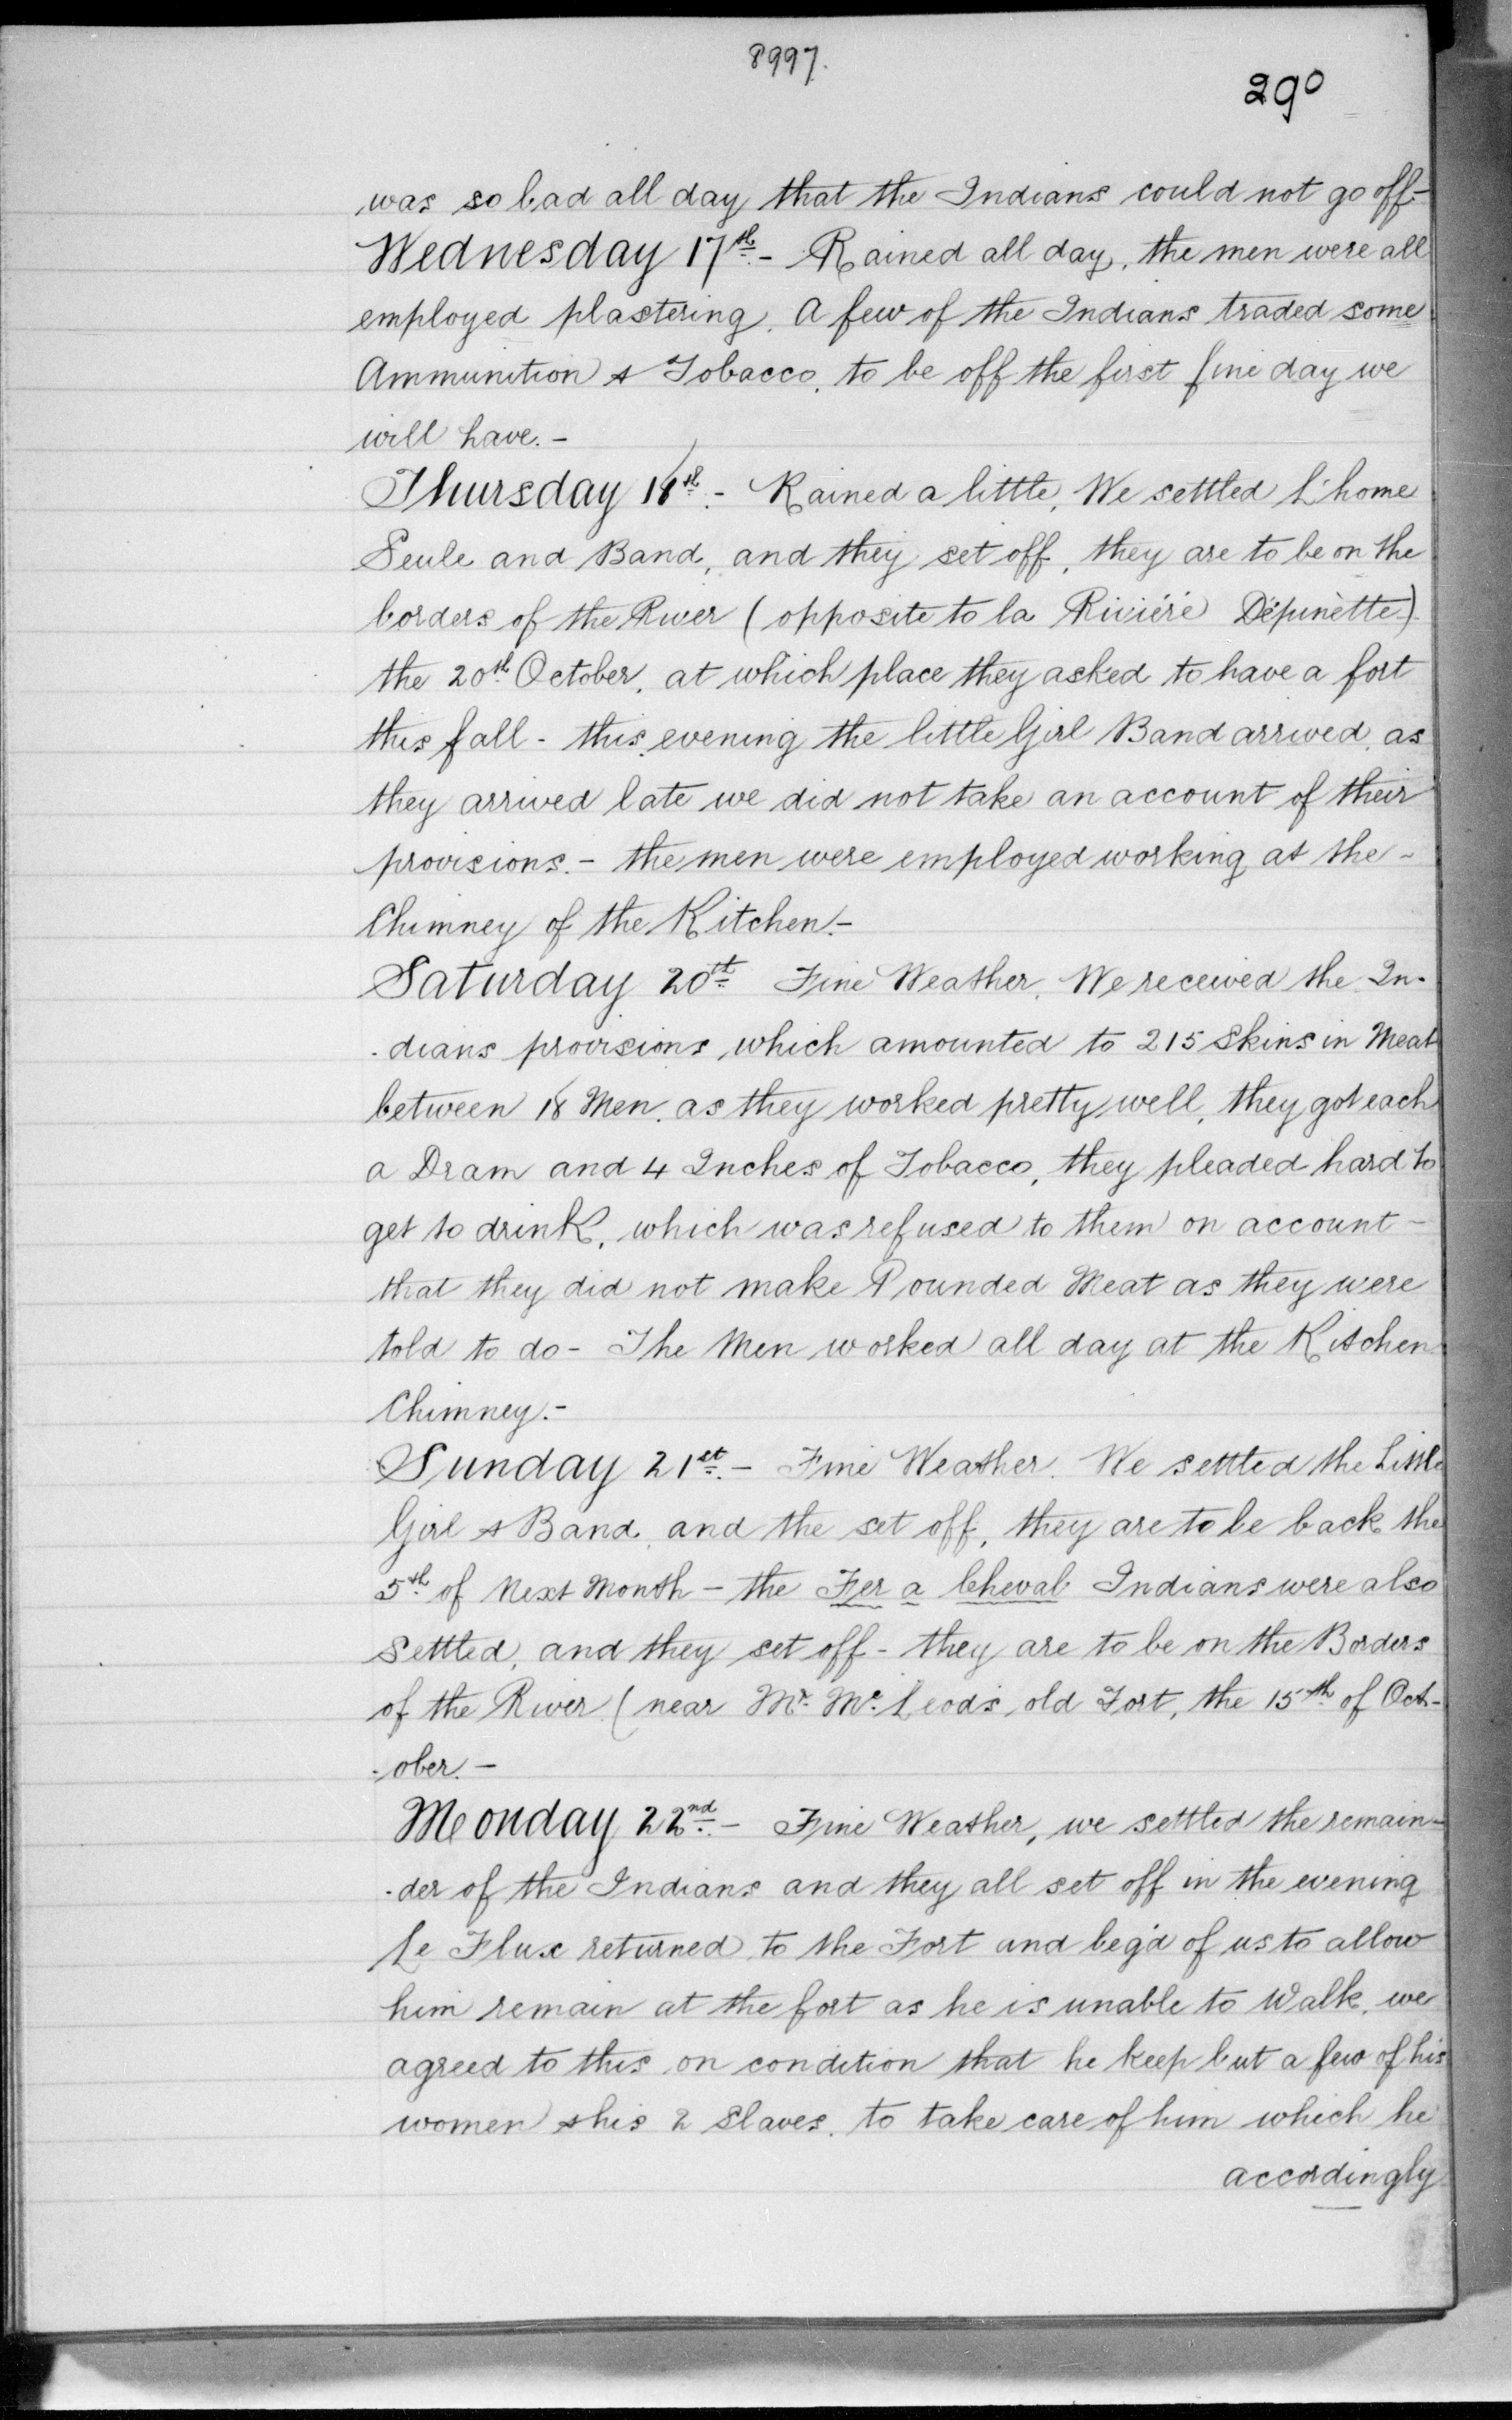 8997.
290
was so bad all day that the Indians could not go off-
Wednesday 17th.- Rained all day, the men were all
employed plastering. A few of the Indians traded some
Ammunition & Tobacco, to be off the first fine day we
will have.-
Thursday 18th.- Rained a little, We settled L'home
Seule and Band, and they set off, they are to be on the
borders of the River (opposite to la Riviéré Dépinètte)
the 20th October, at which place they asked to have a fort
this fall - this evening the little Girl Band arrived, as
they arrived late we did not take an account of their
provisions.- the men were employed working at the -
Chimney of the Kitchen.-
Saturday 20th Fine Weather. We received the In-
-dians provisions which amounted to 215 Skins in Meat
between 18 Men, as they worked pretty well, they got each
a Dram and 4 Inches of Tobacco, they pleaded hard to
get to drink, which was refused to them on account -
that they did not make Pounded Meat as they were
told to do - The Men worked all day at the Kitchen
Chimney.-
Sunday 21st.- Fine Weather. We settled the Little
Girl & Band, and the set off, they are to be back the
5th of Next Month - the Fer a Cheval Indians were also
settled, and they set off - they are to be on the Borders
of the River (near Mr. Mc.Leod's old Fort, the 15th of Oct-
-ober.-
Monday 22nd.- Fine Weather, we settled the remain-
-der of the Indians and they all set off in the evening
Le Flux returned to the Fort and beg'd of us to allow
him remain at the fort as he is unable to Walk, we
agreed to this on condition that he keep but a few of his
women & his 2 Slaves, to take care of him which he
accordingly